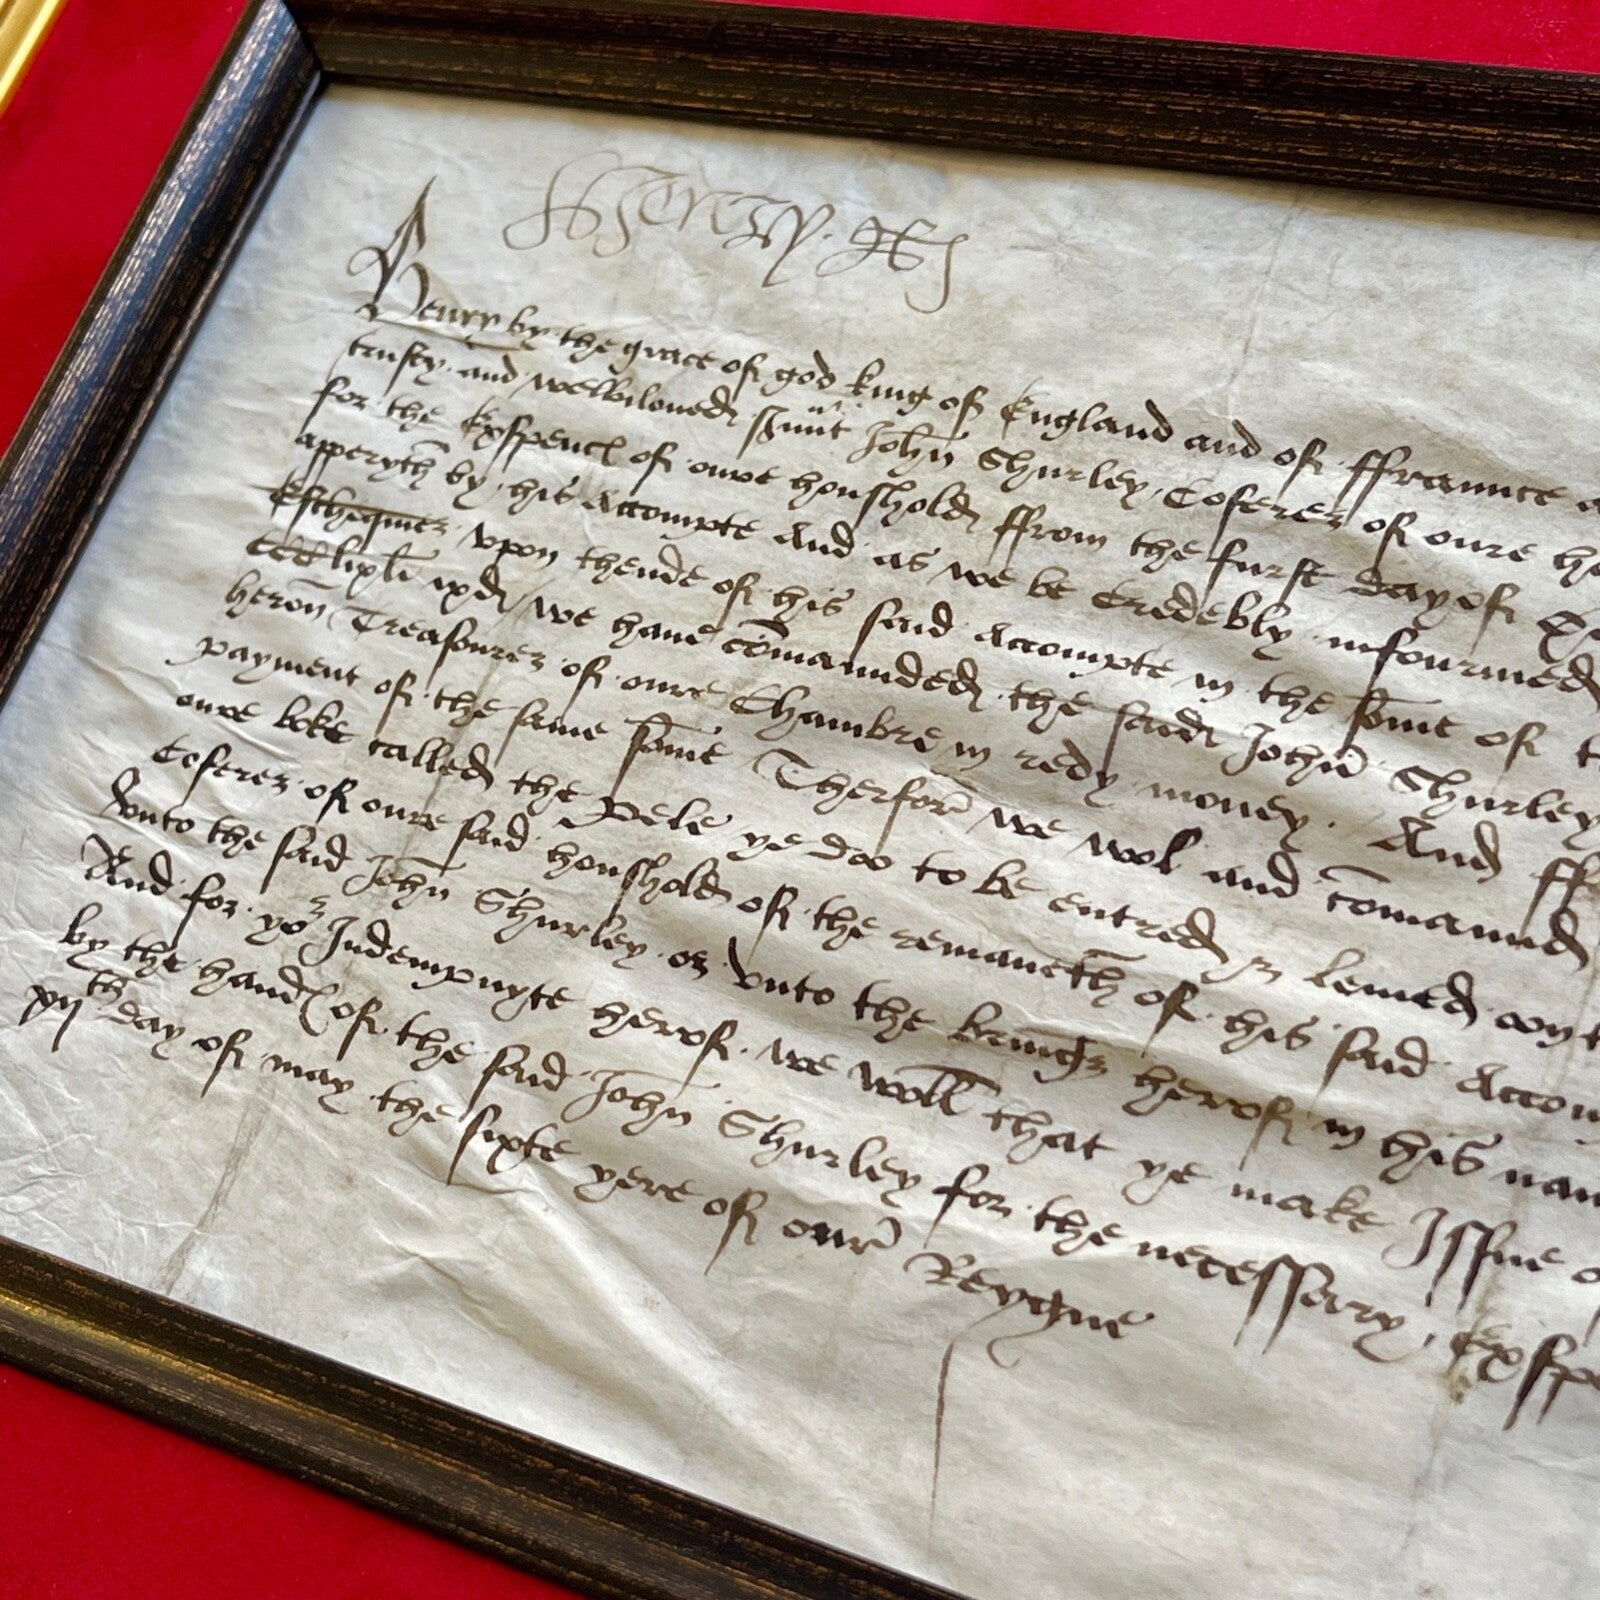 Henry R
Henry by the grace of god king of England and of ffraunce
trusty and welbiloued s͠unt John Shurley Coferer of oure
for the Expences of oure houshold ffrom the furst day of
apperyth by his Accompte And as we be Credebly infourmed
Eschequier vpon thende of his said Accompte in the some of
we haue comaunded the said John Shurley
heron Treasourer of oure Chambre in redy money. And
payment of the same some Therfore we wol and comaund
oure boke called the Pele ye doo to be entred leuied
Coferer of oure said houshold of the remaneth of his said
vnto the said John Shurley or vnto the herof in his
And for yor Indempnyte herof we woll that ye make Issue
by the handes of the said John Shurley for the necessary
xijth day of may the sixte yere of oure Reygne